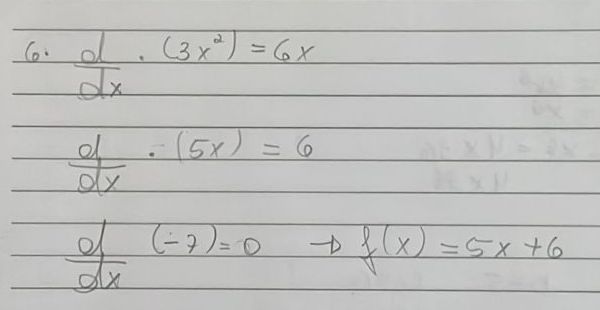 6. d/dx . (3x²) = 6x
d/dx . (5x) = 6
d/dx (-7) = 0 → f(x) = 5x + 6